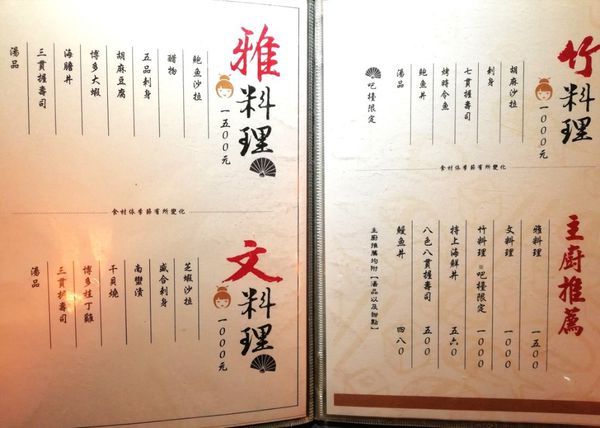 竹料理
一000元
胡麻沙拉
刺身
七貫握壽司
烤時令魚
鮑魚丼
湯品
吧檯限定
食材依季節有所變化
主廚推薦
雅料理 一五00
文料理 一000
竹料理 吧檯限定 一000
特上海鮮丼 五六0
八色八貫握壽司 五00
鰻魚丼 四八0
主廚推薦均附【湯品以及甜點】
雅料理
一五00元
鮑魚沙拉
醋物
五品刺身
胡麻豆腐
博多大蝦
海膽丼
三貫握壽司
湯品
食材依季節有所變化
文料理
一000元
芝蝦沙拉
盛合刺身
南蠻漬
干貝燒
博多桂丁雞
三貫握壽司
湯品